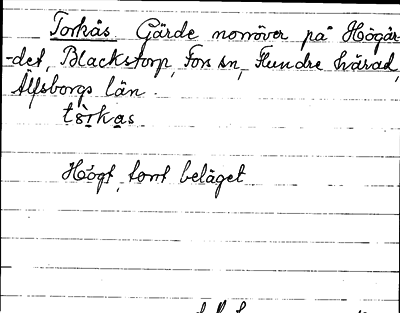 Torkås. Gärde norröver på Högår
-det, Blackstorp, Fors sn, Flundre härad,
Älfsborgs län.
tòrkas.
Högt, torrt beläget